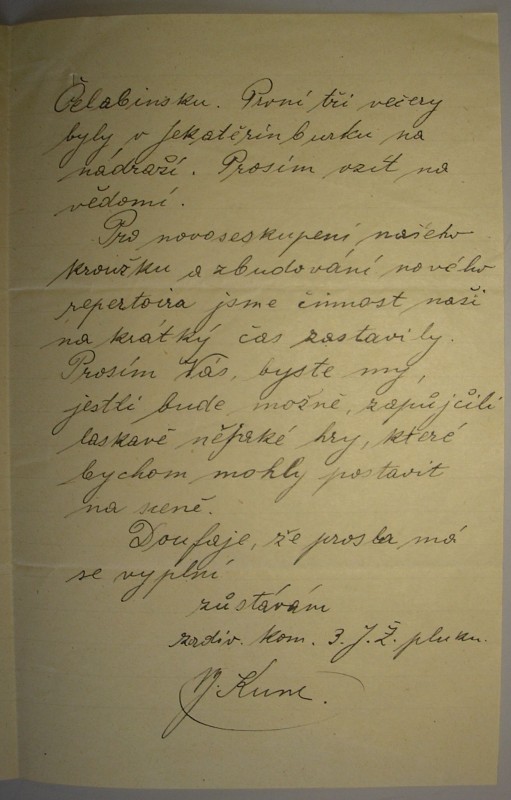 Čelabinsku. První tři večery
byly v Jekatěrinburku na
nádraží. Prosím vzít na
vědomí.
Pro novoseskupení našeho
kroužku a zbudování nového
repertoira jsme činnost naši
na krátký čas zastavily.
Prosím Vás, byste my,
jestli bude možně, zapůjčili
laskavě nějaké hry, které
bychom mohly postavit
na sceně.
Doufaje, že prosba má
se vyplní
zůstávám
kom. 3. J. Ž. pluku.
Kunc.